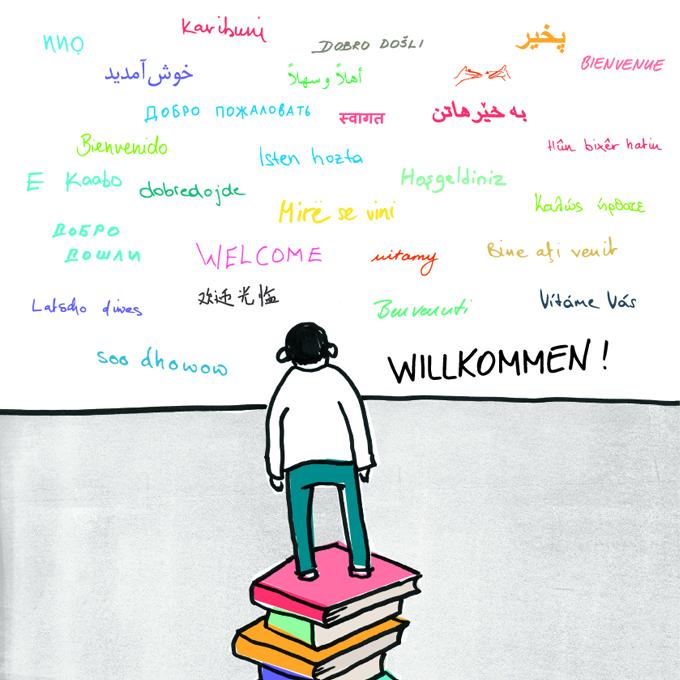 Karibuni
nnọ
DOBRO DOŠLI
پخیر
BIENVENUE
خوش آمدید
أهلاً وسهلاً
ДОБРО ПОЖАЛОВАТЬ
स्वागत
به خێرهاتن
Bienvenido
Isten hozta
Hûn bixêr hatin
E Kaabo
dobredojde
Hoşgeldiniz
Mirë se vini
Καλώς ήρθατε
ДОБРО
ДОШЛИ
WELCOME
witamy
Bine aţi venit
Latscho diwes
欢迎光临
Benvenuti
Vítáme Vás
soo dhowow
WILLKOMMEN!